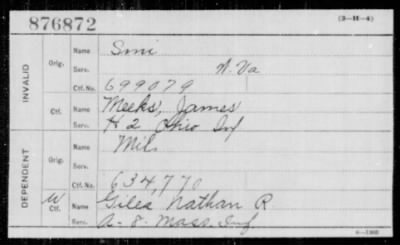 876872 (3-H-4)
INVALID
Orig. Name Smi
Serv. W. Va
Ctf. No. 699079
Ctf. Name Meeks, James
Serv. H 2 Ohio Inf
DEPENDENT
Orig. Name Mil
Serv.
Ctf. No. 634,770
W Ctf. Name Giles Nathan R
Serv. A. 8. Mass. Inf